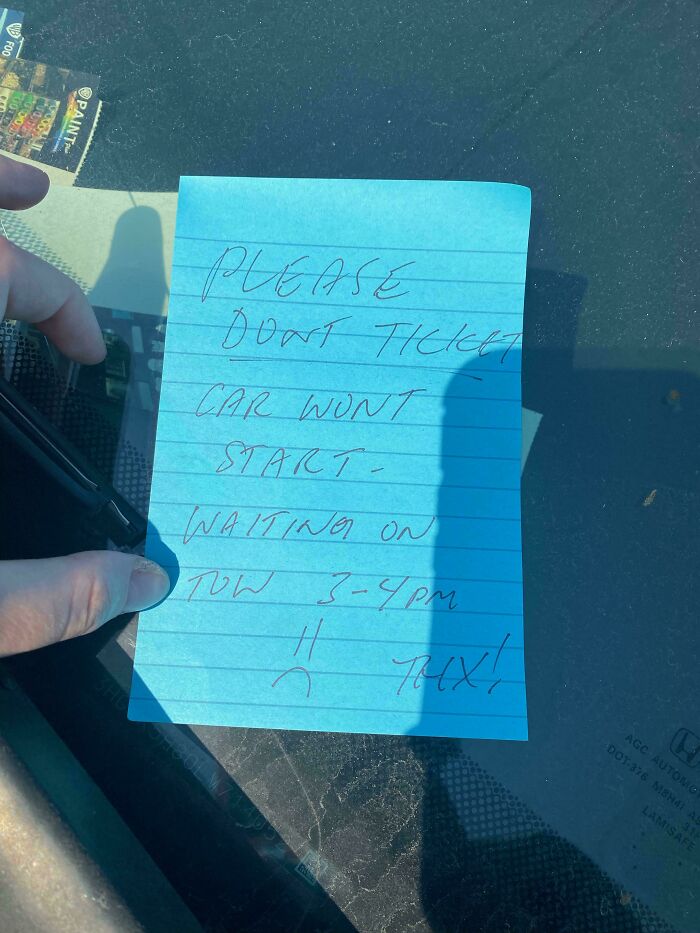 PLEASE
DONT TICKET
CAR WONT
START-
WAITING ON
TOW 3-4PM
THX!
PAINT
FOO
AGC AUTOMO
DOT-376 M8H41 A
LAMISAFE